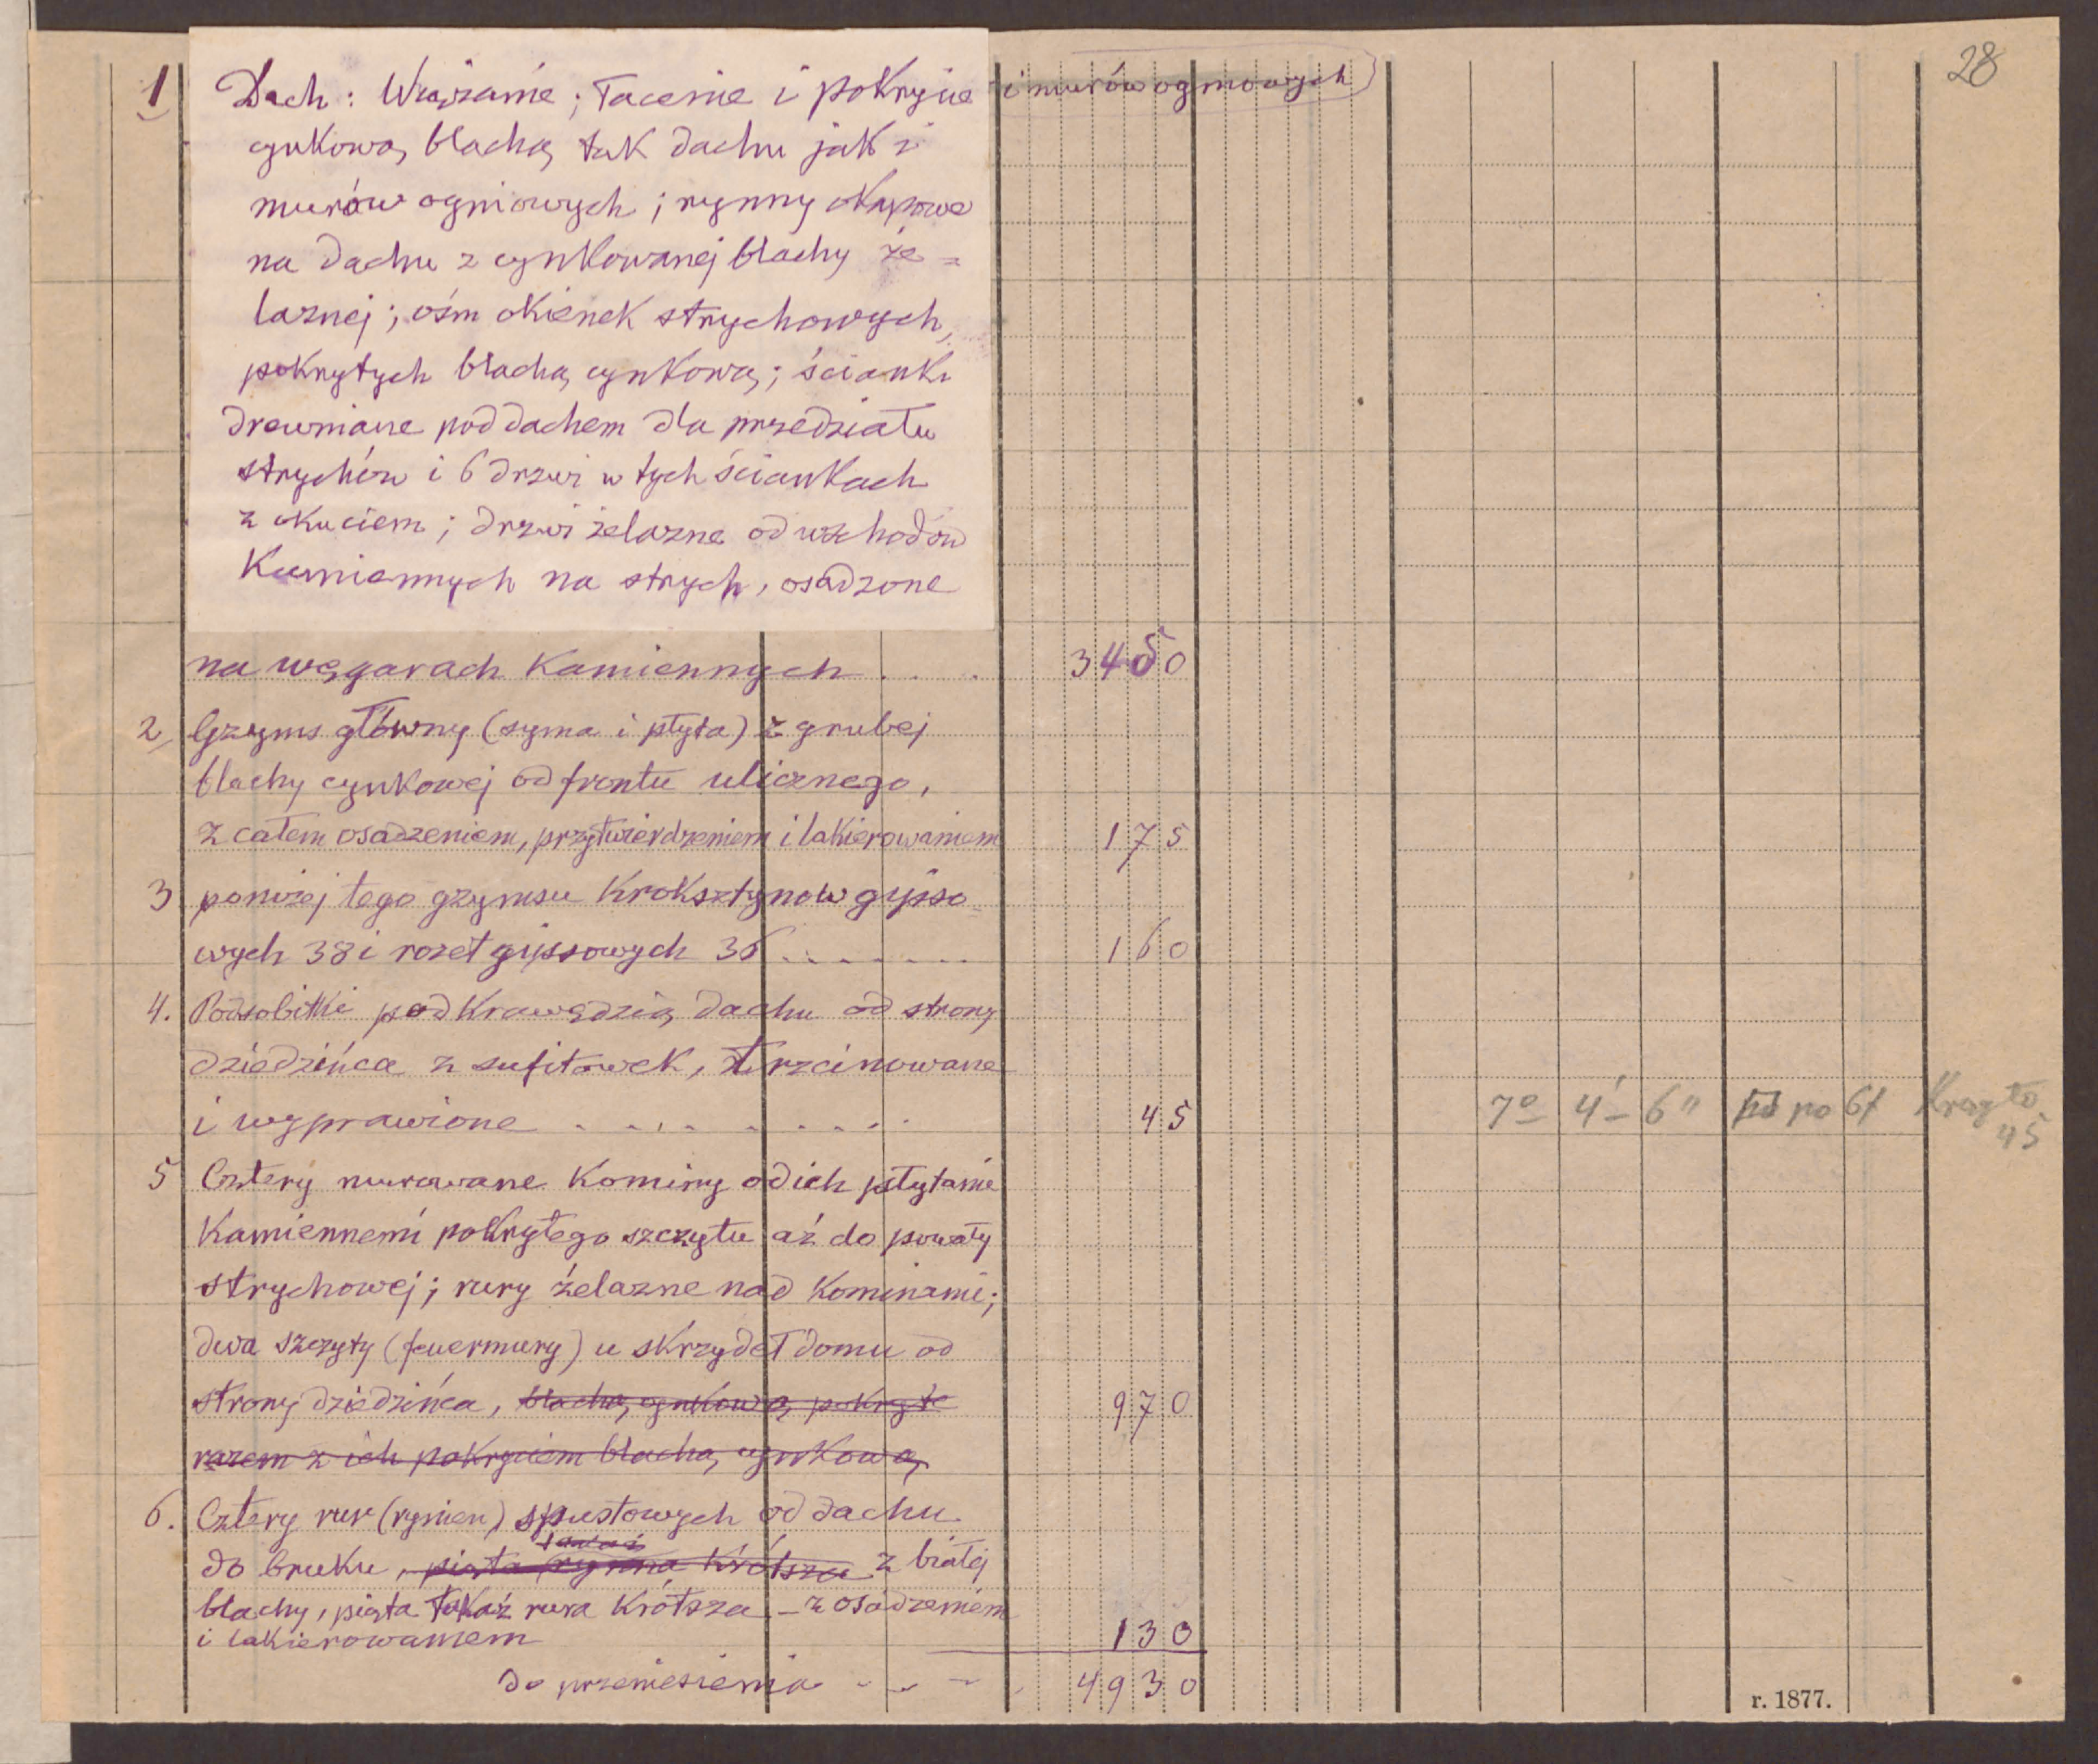 28
1 Dach: Wiązanie; łacenie i pokrycie i murów ogniowych
cynkową blachą tak dachu jak i
murów ogniowych; rynny okapowe
na dachu z cynkowanej blachy że=
laznej; ośm okienek strychowych,
pokrytych blachą cynkową; ścianki
drewniane pod dachem dla przedziału
strychów i 6 drzwi w tych ściankach
z okuciem; drzwi żelazne od wschodów
Kamiennych na strych, osadzone
na węgarach Kamiennych . . . 3450
2, Gzyms główny (syma i płyta) z grubej
blachy cynkowej od frontu ulicznego,
z całem osadzeniem, przytwierdzeniem i lakierowaniem 175
3 poniżej tego gzymsu Kroksztynow gipso=
wych 38 i rozet gipsowych 36 . . . . . . . 160
4. Podsobitki pod Krawędzią dachu od strony
dziedzińca z sufitówek, trzcinowane
i wyprawione . . . . . . . . . 45 7° 4' - 6" po 6f Kreszto 45
5 Cztery murowane Kominy od ich płytami
Kamiennemi pokrytego szczytu aż do powały
strychowej; rury żelazne nad Kominami;
dwa szczyty (feuermury) u skrzydeł domu od
strony dziedzińca, blachą cynkową pokryte 970
razem z ich pokryciem blachą cynkową
6. Cztery rur (rynien) spustowych od dachu
do bruku, piąta rynna Krótsza z białej
blachy, piąta takaż rura Krótsza – z osadzeniem
i lakierowaniem 130
do przeniesienia - - - . 4930
r. 1877.